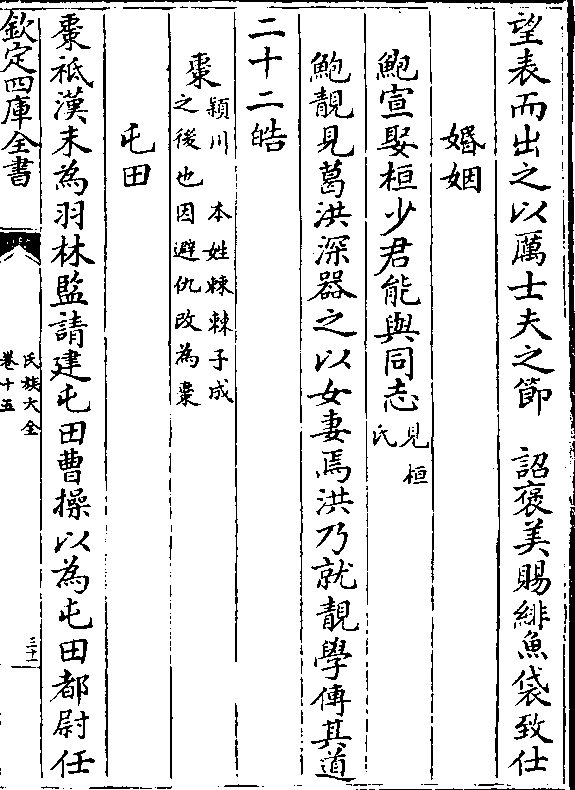 望表而出之以厲士夫之節　詔褒美賜緋魚袋致仕
婚姻
鮑宣娶桓少君能與同志見桓氏
鮑靚見葛洪深器之以女妻焉洪乃就靚學傳其道
二十二皓
棗潁川　本姓棘棘子成之後也因避仇改為棗
屯田
棗祗漢末為羽林監請建屯田曹操以為屯田都尉任
欽定四庫全書
氏族大全
卷十五
三十一